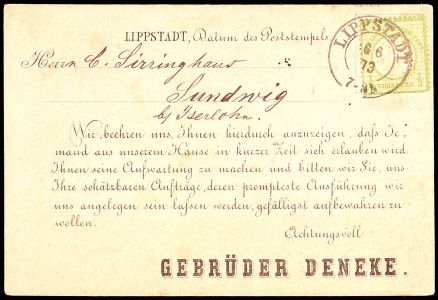 LIPPSTADT, Datum des Poststempels.
LIPPSTADT
6 6
73
Herrn C. Sirringhaus
Sundwig
b/ Iserlohn.
Wir beehren uns, Ihnen hierdurch anzuzeigen, dafs Je-
mand aus unserem Hause in kurzer Zeit sich erlauben wird,
Ihnen seine Aufwartung zu machen und bitten wir Sie, uns
Ihre schätzbaren Aufträge, deren prompteste Ausführung wir
uns angelegen sein lassen werden, gefälligst aufbewahren zu
wollen.
Achtungsvoll
GEBRÜDER DENEKE.